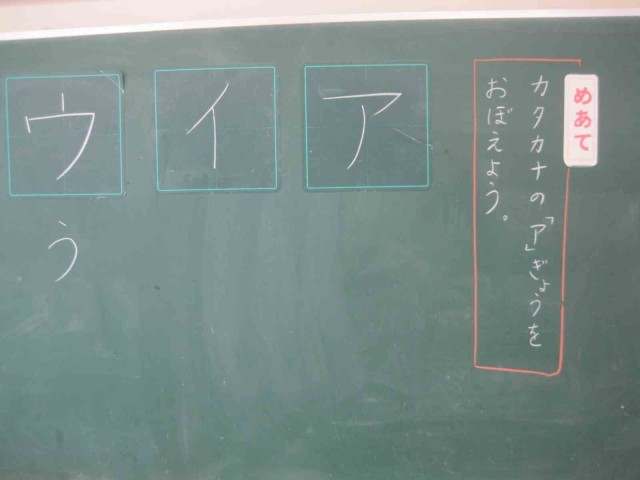 めあて
カタカナの「ア」ぎょうを
おぼえよう。
ア
イ
ウ
う